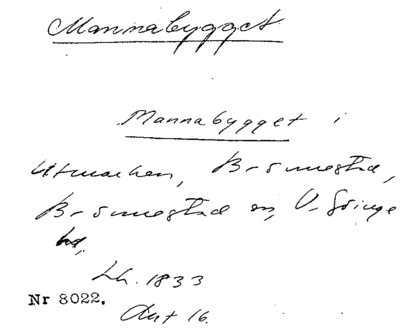 Mannabygget
Mannabygget i
Utmarken, Brömestad,
Brömestad sn, V. Göinge
hd,
Lh. 1833
Nr 8022.
Akt 16.